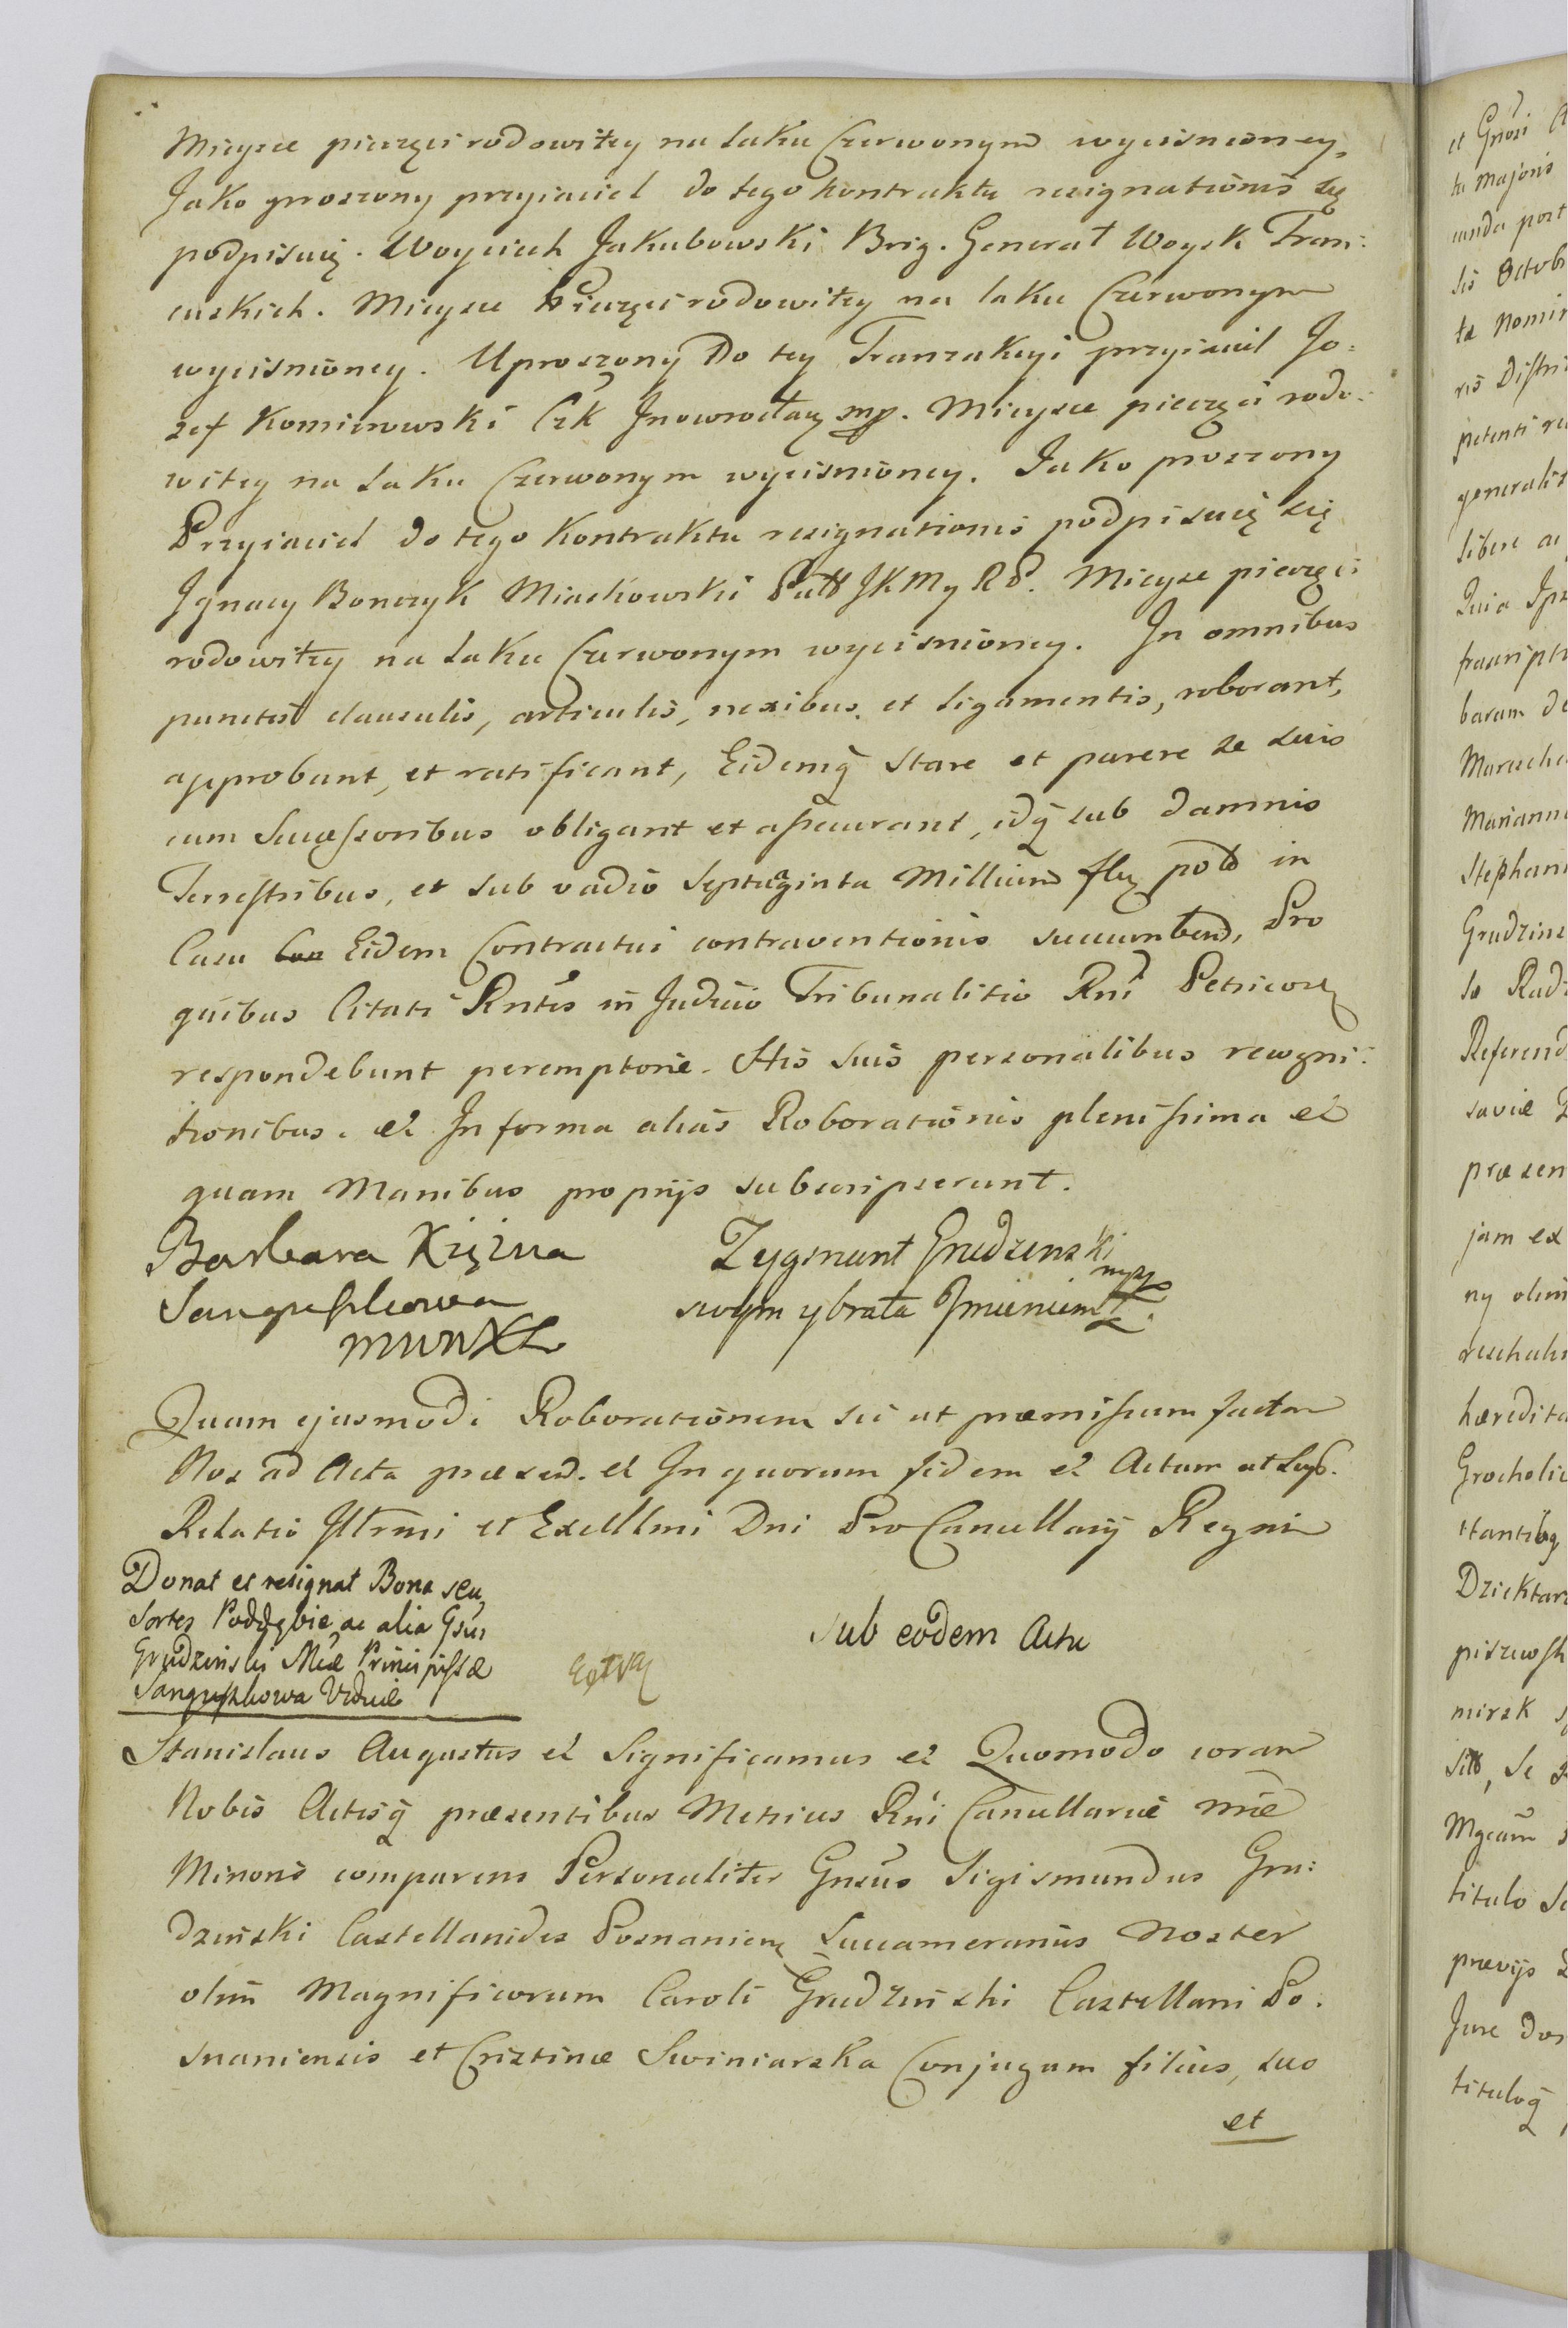 Mieysce pieczęci rodowitey na laku Czerwonym wyciśnioney,
Jako proszony przyiaciel do tego kontraktu resignationis się
podpisuię. Woyciech Jakubowski Bryg. Generał Woysk Fran:
cuskich. Mieysce Pieczęci rodowitey na laku Czerwonym
wyciśnioney. Uproszony Do tey Tranzakcyi przyiaciel Jo:
zef Komierowski Czk Jnowrocław mp. Mieysce pieczęci rodo:
witey na laku Czerwonym wyciśnioney. Jako proszony
Przyiaciel do tego Kontraktu resignationis podpisuię się
Jgnacy Bonczyk Miaskowski Putt JKMy RP. Mieysce pieczęci
rodowitey na laku Czerwonym wyciśnioney. In omnibus
punctis clausulis, articulis, nexibus, et ligamentis, roborant,
approbant, et ratificant, Eidemq̃ stare et parere se suis
cum Successoribus obligant et assecurant, idq̃ sub damnis
Terrestribus, et sub vadio Septuaginta Millium flor pol in
Casu Eidem Contractui contraventionis succumbend, Pro
quibus Citati Rntes in Judicio Tribunalitio Rni Petricov
respondebunt peremptorie. His suis personalibus recogni:
tionibus. et In forma alias Roborationis plenissima et
quam Manibus proprijs subscripserunt.
Barbara Xiężna Zygmunt Grudzenski
mp
Sanguszkowa swym y brata Jmieniem
MWWXL
Quam ejusmodi Roborationem sic ut præmissum factam
Nos ad Acta præsen. et In quorum fidem et Actum ut Sup.
Relatio Jllrmi et Excllmi Dni ProCancellarij Regni
Donat et resignat Bona seu
Sortes Poddębie ac alia Gsus
Grudzinski Mæ Principissæ
Sanguszkowa Viduæ
Sub eodem Actu
Stanislaus Augustus et Significamus et Quomodo coram
Nobis Actisq̃ præsentibus Metrices Rni Cancellariæ nræ
Minoris comparens Personaliter Gnsus Sigismundus Gru:
dzinski Castellanides Posnanien Succamerarius Noster
olim Magnificorum Caroli Grudzinski Castellani Po:
snaniensis et Cristinæ Swiniarska Conjugum filius, suo
et
et Gnosi
ta Majoris
cunda post
lis Octob
ta Nomin
ris Distri
petenti re
generalit
libere ac
Quia
baram de
Marscha
Mariann
Stephani
Grudzins
Referend
saviæ
præsen
jam ex
ny olim
reschali
hæredita
Grocholic
stantibq
Dziektar
piszewsk
mirsk
Mgcam
titulo
prævijs
Jure
tituloq̃